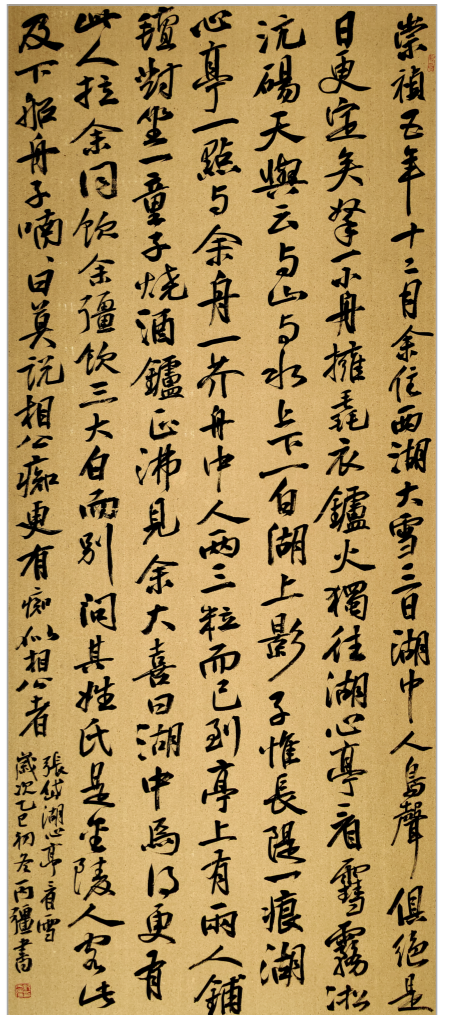 崇禎五年十二月余住西湖大雪三日湖中人鳥聲俱絕是
日更定矣拏一小舟擁毳衣鑪火獨往湖心亭看雪霧凇
沆碭天與云与山与水上下一白湖上影子惟長隄一痕湖
心亭一點与余舟一芥舟中人兩三粒而已到亭上有兩人鋪
氈對坐一童子燒酒鑪正沸見余大喜曰湖中焉得更有
此人拉余同飲余彊飲三大白而別問其姓氏是金陵人客此
及下船舟子喃〻曰莫說相公痴更有痴似相公者
張岱湖心亭看雪
歲次乙巳初冬丙彊書